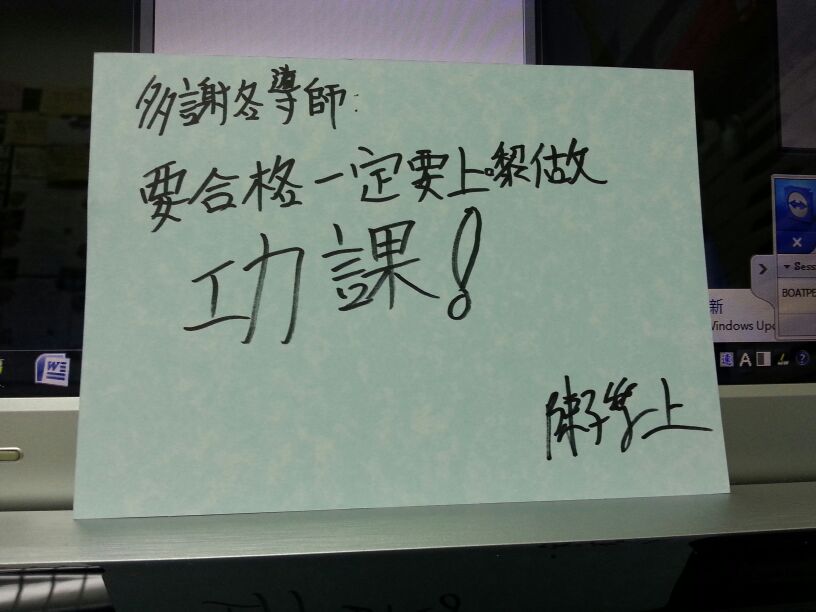 多謝各導師:
要合格一定要上嚟做
功課!
陳子 上
新
Windows Upd
Sess
BOATPE
W
A